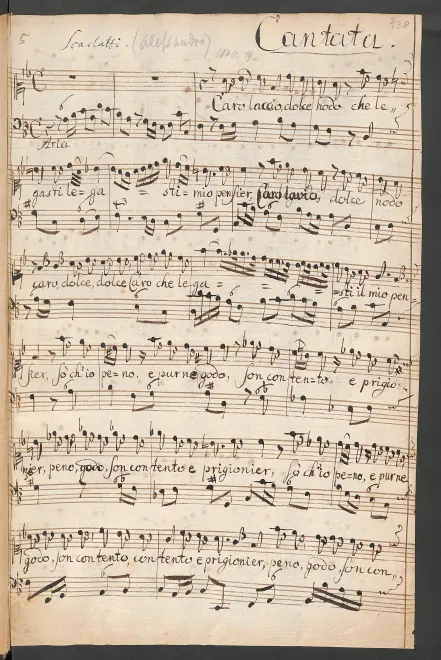 5 Scarlatti. (Alessandro) Cantata. 238
Caro laccio, dolce nodo che le,,
Aria
gasti le=ga = = sti=mio pensier, Caro lacio, dolce nodo
caro, dolce, dolce caro che le-ga= = = =sti il mio pen=
sier, sò ch'io pe=no, e pur ne godo, son contento e prigio=
nier, peno, godo, son contento e prigionier, sò ch'io pe=no, e pur ne
godo, son contento, contento e prigionier, peno, godo son con,,